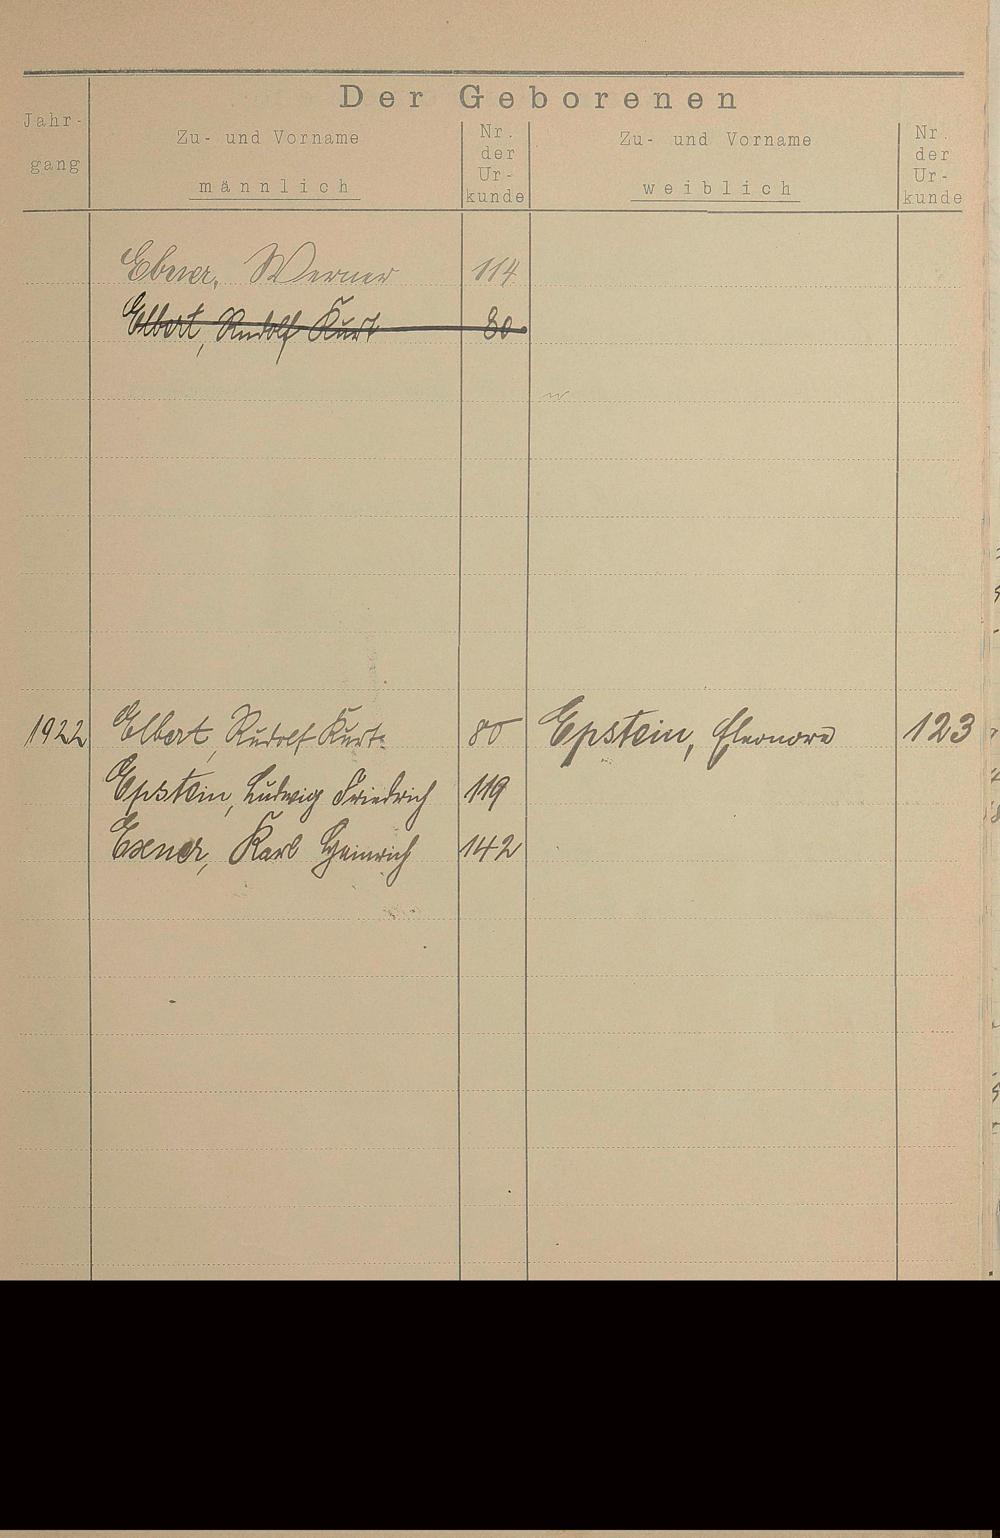 Der Geborenen
Jahr-
gang
Zu- und Vorname
männlich
Nr.
der
Ur-
kunde
Zu- und Vorname
weiblich
Nr.
der
Ur-
kunde
Ebner, Werner 114
Elbert, Rudolf Kurt 80
1922 Elbert, Rudolf Kurt 80 Epstein, Eleonore 123
Epstein, Ludwig Friedrich 119
Exner, Karl Heinrich 142